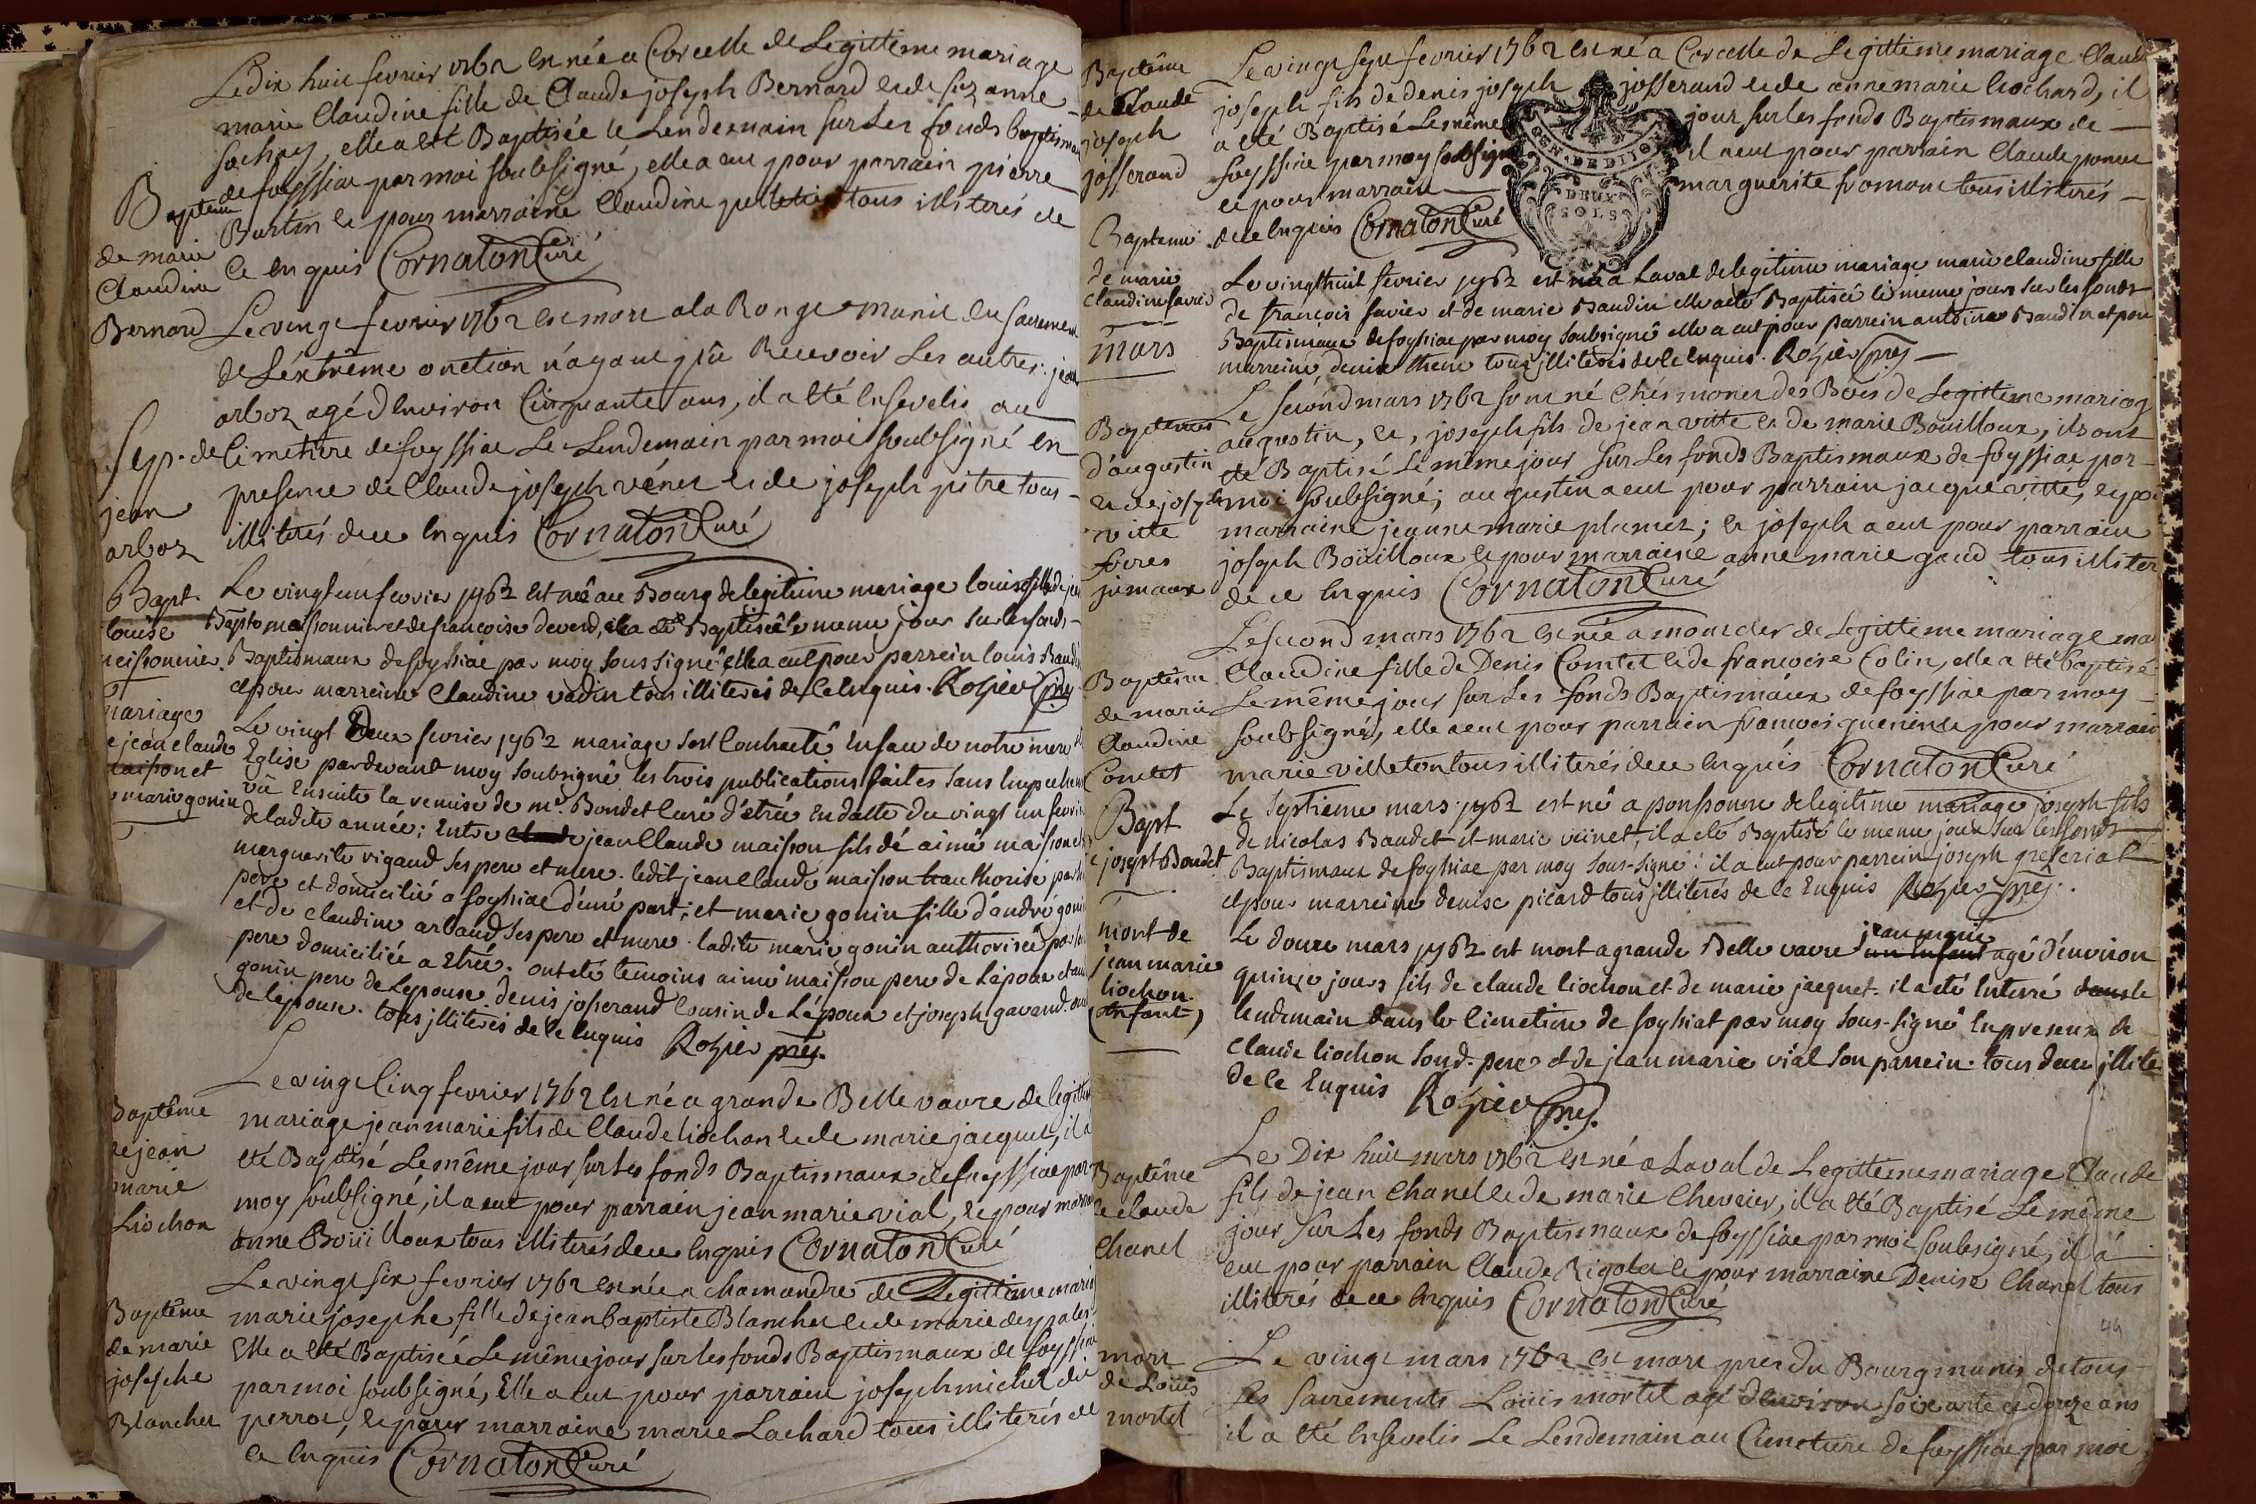 Le dix huit fevrier 1762 est née a Corcelle de Legittime mariage
marie Claudine fille de Claude joseph Bernard et de suz anne
sochay, elle a été Baptisée le Lendemain sur Les fonds baptismau
de foyssiac par moi soubsigné, elle a eut pour parrain pierre
Burtin et pour marraine Claudine tous illiterés de
ce enquis Cornaton Curé
Bapteme
de marie
Claudine
Bernard
Le vingt fevrier 1762 est mort a la Ronge munit du sacrement
de L'éxtrême onction n'ayant pû Recevoir Les autres. jean
arboz agé d'Environ Cinquante ans, il a été Ensevelis au
Cimetiere de foyssiac Le Lendemain par moi soubsigné en
presence de Claude joseph vénet et de joseph pitre tous
illiterés de ce enquis Cornaton Curé
Sep. de
jean
arboz
Le vingt un fevrier 1762 est né au Bourg de legitime mariage louise fille de je
Bapt. maissonnier et de francoise devend, ella a été Baptisée le meme jour sur les fonds
Baptismaux de foyssiac par moy sous signé elle a eut pour parrein louis Baudi
et pour marreine Claudine vadin tous illiterés de ce Enquis. Rozier prêj.
Bapt.
louise
meissonnier
Le vingt Deux fevrier 1762 mariage s'est Contracté En face de notre mere
Eglise pardevant moy soubsigné les trois publications faites sans Empechem
vû Ensuite la remise de mr Bondet Curé d'étrée En datte du vingt un fevri
de ladite année; Entre jean Claude maisson fils dé aimé maisson et
marguerite rigaud ses pere et mere. ledit jean Claude maisson authorisé par s
pere et domicilié a foyssiac d'une part; et marie gonin fille d'andré goni
et de claudine arbaud ses pere et mere. ladite marie gonin authorisée par so
pere domiciliée a Etrée. ont été temoins aimé maisson pere de L'époux et an
gonin pere de Lepouse. denis josserand Cousin de L'époux et joseph gavand
de lepouse. tous jlliterés de ce Enquis Rozier prêj.
mariage
e jean claude
maisson et
e marie gonin
Le vingt Cinq fevrier 1762 est né a grande Belle vavre de legittim
mariage jean marie fils de Claude liochon et de marie jacquet, il a
été Baptisé Le même jour sur Les fonds Baptismaux de foyssiac par
moy soubsigné, il a eut pour parrain jean marie vial, et pour marrai
anne Boüilloux tous illiterés de ce Enquis Cornaton Curé
Baptême
de jean
marie
Liochon
Le vingt six fevrier 1762 est née a chamandre de Legittime maria
marie josephe fille de jean baptiste Blanchet et de marie despales
Elle a été Baptisée Le même jour sur les fonds Baptismaux de foyssia
par moi soubsigné, Elle a eut pour parrain joseph michel dit
perrot, et pour marraine marie Lachard tous illiterés de
ce enquis Cornaton Curé
Baptême
de marie
josephe
Blanchet
Le vingt sept fevrier 1762 est né a Corcelle de Legittime mariage Claud
joseph fils de denis joseph josserand et de anne marie liochard, il
a été Baptisé Le même jour sur Les fonds Baptismaux de
foyssiac par moy soubsigné il a eut pour parrain Claude ponut
et pour marraine marguerite fromont tous illiterés
de ce enquis Cornaton Curé
GEN. DE DIJON
DEUX
SOLS
Baptême
de Claude
joseph
josserand
Le vingt huit fevrier 1762 est né a Laval de legitime mariage marie claudine fille
de francois favier et de marie Baudin elle a été Baptisée le meme jour sur les fonds
Baptismaux de foyssiac par moy soubsigné elle a eut pour parrein antoine Baudin et pou
marreine denise tous jlliterés de ce Enquis. Rozier prêj
Bapteme
de marie
Claudine favier
mars
Le second mars 1762 sont né Chés monet des Bois de Legittime mariag
augustin, et, joseph fils de jean vitte et de marie Boüilloux, ils ont
été Baptisé Le même jour sur Les fonds Baptismaux de foyssiac par
moi soubsigné; augustin a eut pour parrain jacque vitte, et po
marraine jeanne marie plumet; et joseph a eut pour parrain
joseph Boüilloux et pour marraine anne marie gaud tous illiter
de ce enquis Cornaton Curé
Baptemes
d'augustin
et de joseph
vitte
freres
jumaux
Le second mars 1762 est née a montcler de Legittime mariage ma
Claudine fille de Denis Comtet et de francoise Colin, elle a été baptisé
Le même jour sur Les fonds Baptismaux de foyssiac par moy
soubsigné, elle a eut pour parrain francois guerin et pour marrain
marie villeton tous illiterés de ce enquis Cornaton Curé
Baptême
de marie
Claudine
Comtet
Le septieme mars 1762 est né a ponssonne de legitime mariage joseph fils
de nicolas Baudet et marie veinet, il a été Baptisé le meme jour sur les fonds
Baptismaux de foyssiac par moy sous-signé; il a eut pour parrein joseph greferiat
et pour marreine denise picard tous jlliterés de ce Enquis Rozier prêj.
Bapt
joseph Baudet
Le douze mars 1762 est mort a grande Belle vavre jean marie agé d'environ
quinze jours fils de claude liochon et de marie jacquet. il a été Enterré dans le
lendemain dans le Cimetiere de foyssiat par moy sous-signé En presence de
Claude liochon sond. pere et de jean marie vial son parrein. tous deux jllite
de ce Enquis Rozier prêj.
mort de
jean marie
liochon
(enfant)
Le Dix huit mars 1762 est né a Laval de Legittime mariage Claude
fils de jean Chanel et de marie Chevrier, il a été Baptisé Le même
jour sur Les fonds Baptismaux de foyssiac par moi soubsigné, il á
eut pour parrain Claude Rigolet et pour marraine Denise Chanel tous
illiterés de ce enquis Cornaton Curé
Baptême
de claude
Chanel
Le vingt mars 1762 est mort pres du Bourg munis de tous
les sacrements Loüis mortel agé d'environ soixante et douze ans
il a été Ensevelis Le Lendemain au Cimetiere de foyssiac par moi
mort
de Loüis
mortel
44